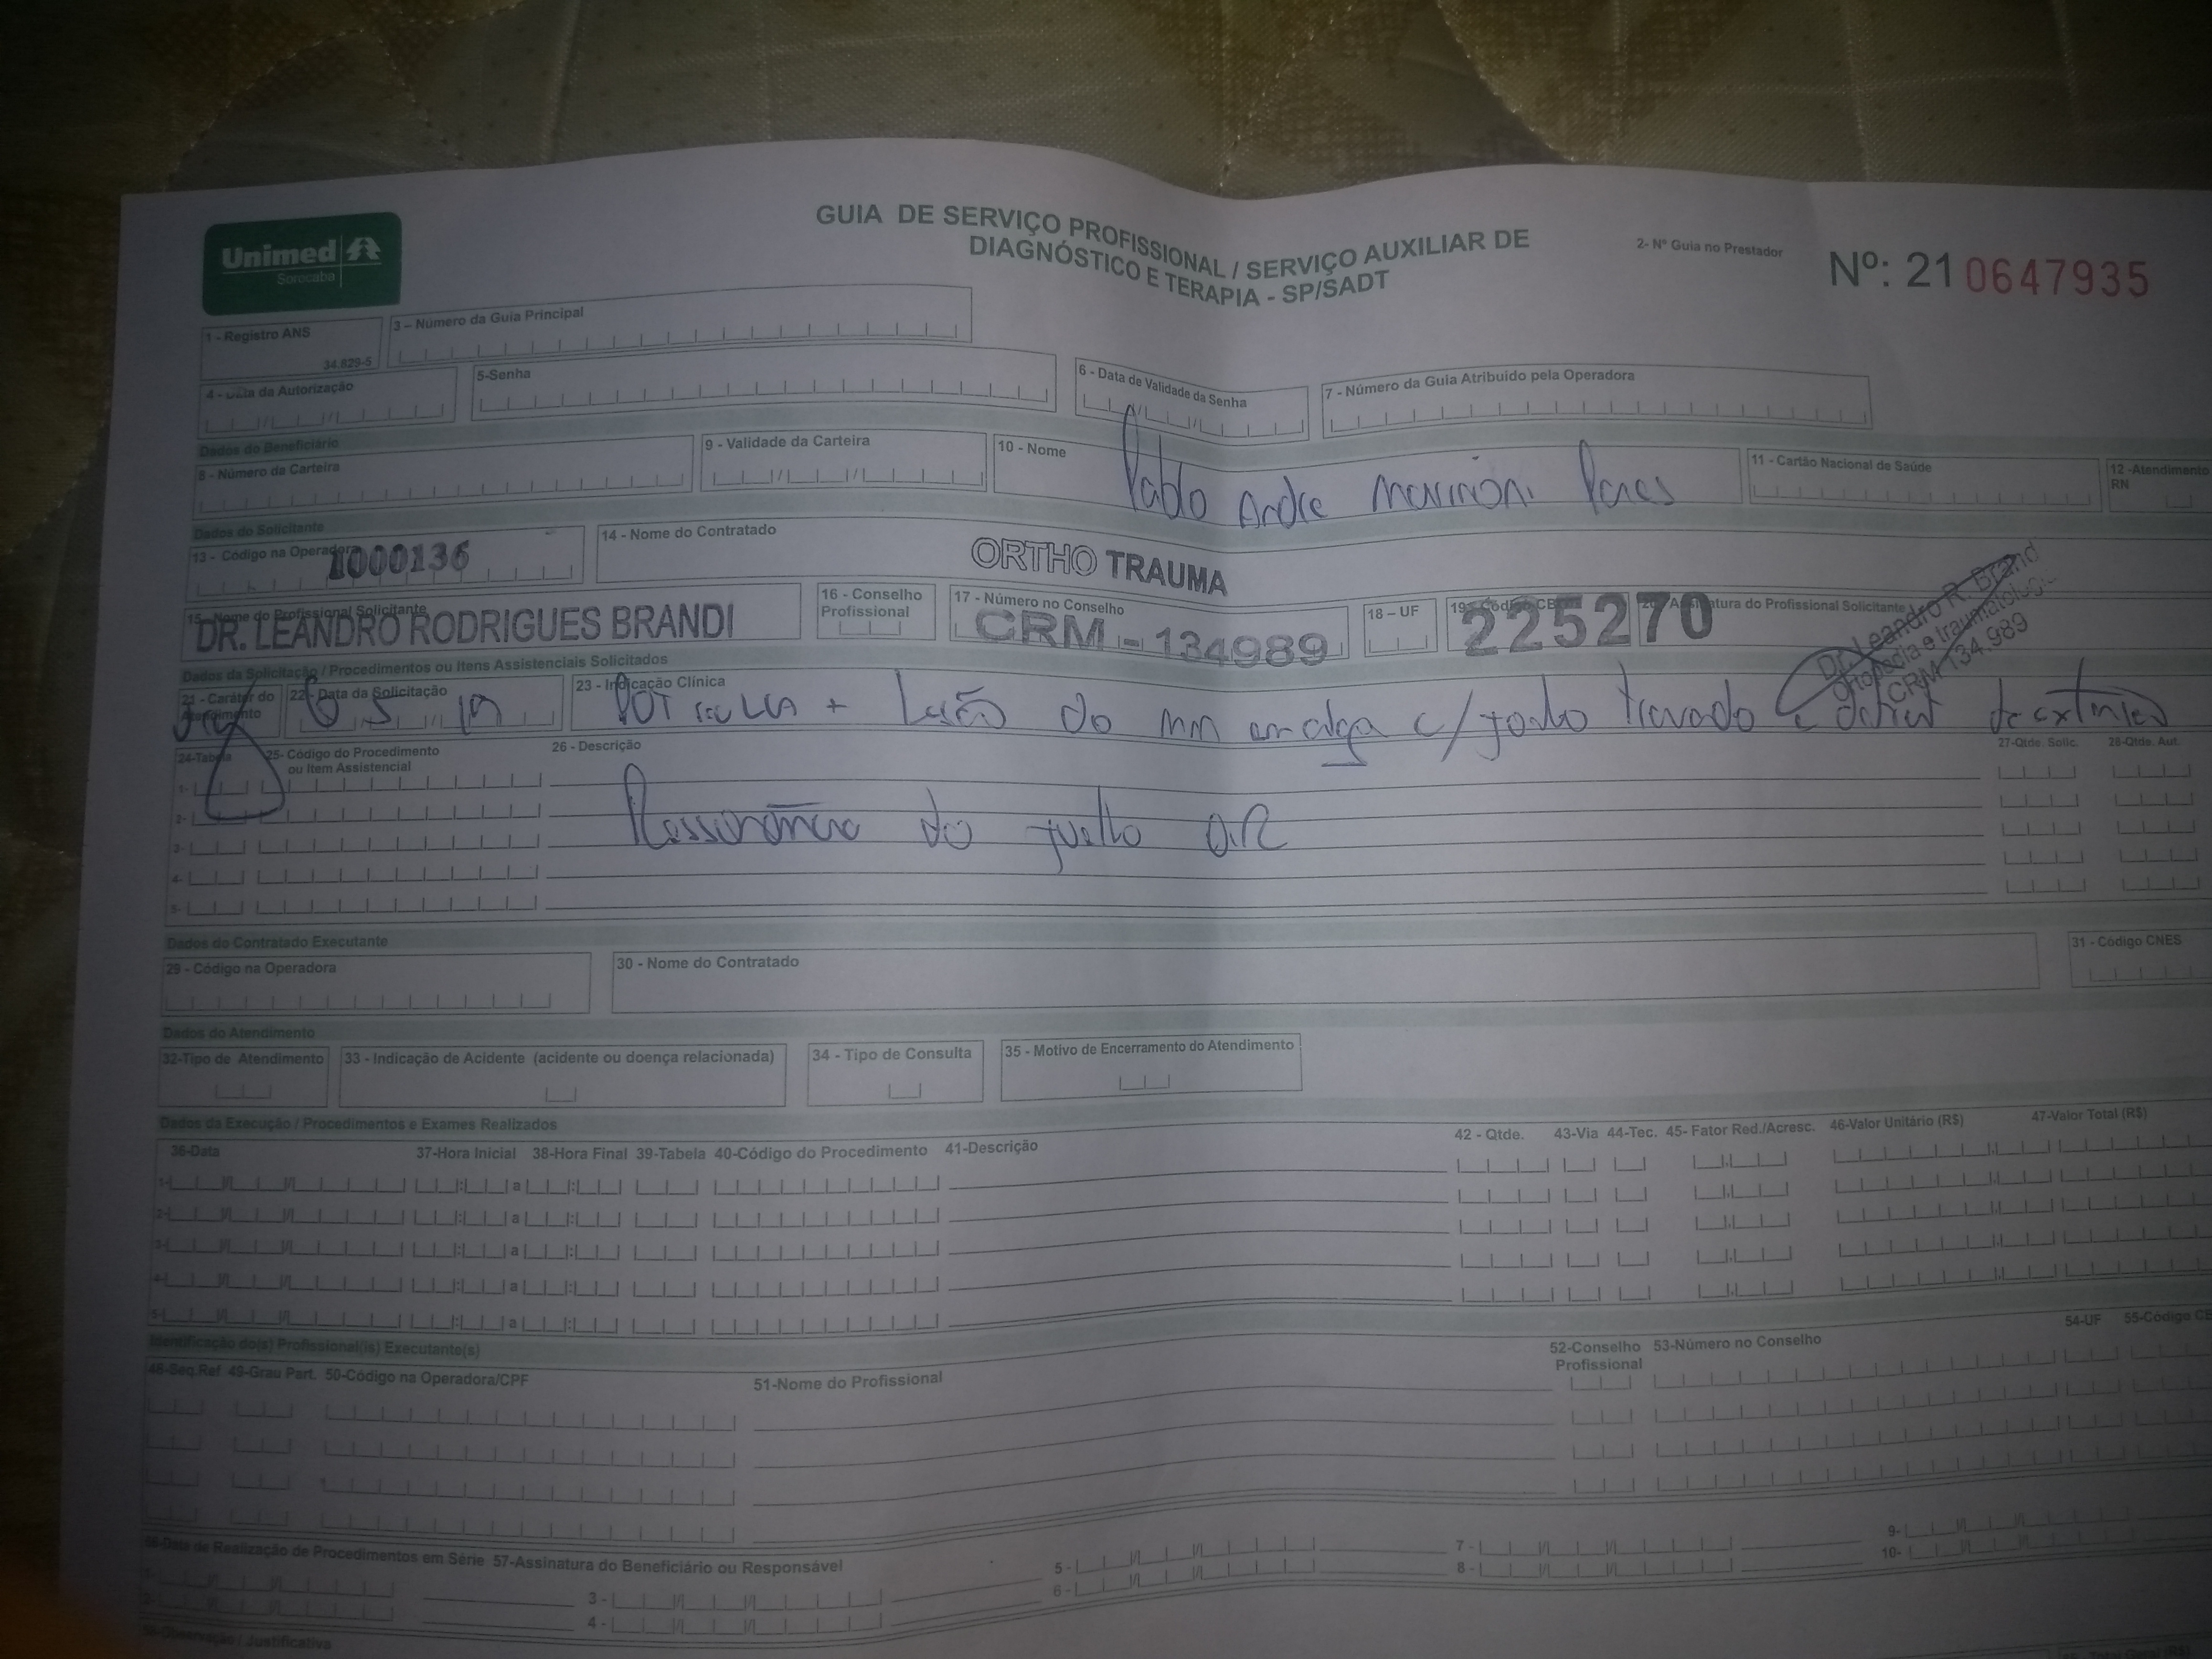 Unimed
Sorocaba
GUIA DE SERVIÇO PROFISSIONAL / SERVIÇO AUXILIAR DE
DIAGNÓSTICO E TERAPIA - SP/SADT
2- Nº Guia no Prestador
Nº: 21 0647935
1 - Registro ANS
34.829-5
3 - Número da Guia Principal
4 - Data da Autorização
5-Senha
6 - Data de Validade da Senha
7 - Número da Guia Atribuído pela Operadora
Dados do Beneficiário
8 - Número da Carteira
9 - Validade da Carteira
10 - Nome
Pablo Andre
11 - Cartão Nacional de Saúde
12 -Atendimento
RN
Dados do Solicitante
13 - Código na Operadora
1000136
14 - Nome do Contratado
ORTHO TRAUMA
15 - Nome do Profissional Solicitante
DR. LEANDRO RODRIGUES BRANDI
16 - Conselho
Profissional
17 - Número no Conselho
CRM - 134989
18 – UF
19 - Código CBO
225270
20 - Assinatura do Profissional Solicitante
Dr. Leandro R. Brand
Ortopedia e traumatologi
CRM 134.989
Dados da Solicitação / Procedimentos ou Itens Assistenciais Solicitados
21 - Caráter do
Atendimento
22 - Data da Solicitação
23 - Indicação Clínica
+ Lesão do mm em alça c/ joelho travado e deficit de extensão
24-Tabela
25- Código do Procedimento
ou Item Assistencial
26 - Descrição
27-Qtde. Solic.
28-Qtde. Aut.
1-
2-
3-
4-
5-
Ressonância do joelho
Dados do Contratado Executante
29 - Código na Operadora
30 - Nome do Contratado
31 - Código CNES
Dados do Atendimento
32-Tipo de Atendimento
33 - Indicação de Acidente (acidente ou doença relacionada)
34 - Tipo de Consulta
35 - Motivo de Encerramento do Atendimento
Dados da Execução / Procedimentos e Exames Realizados
36-Data
37-Hora Inicial
38-Hora Final
39-Tabela
40-Código do Procedimento
41-Descrição
42 - Qtde.
43-Via
44-Tec.
45- Fator Red./Acresc.
46-Valor Unitário (R$)
47-Valor Total (R$)
1- a
2- a
3- a
4- a
5- a
Identificação do(s) Profissional(is) Executante(s)
48-Seq.Ref
49-Grau Part.
50-Código na Operadora/CPF
51-Nome do Profissional
52-Conselho
Profissional
53-Número no Conselho
54-UF
55-Código CB
56-Data de Realização de Procedimentos em Série
57-Assinatura do Beneficiário ou Responsável
1-
2-
3 -
4 -
5 -
6 -
7 -
8 -
9-
10-
58-Observação / Justificativa